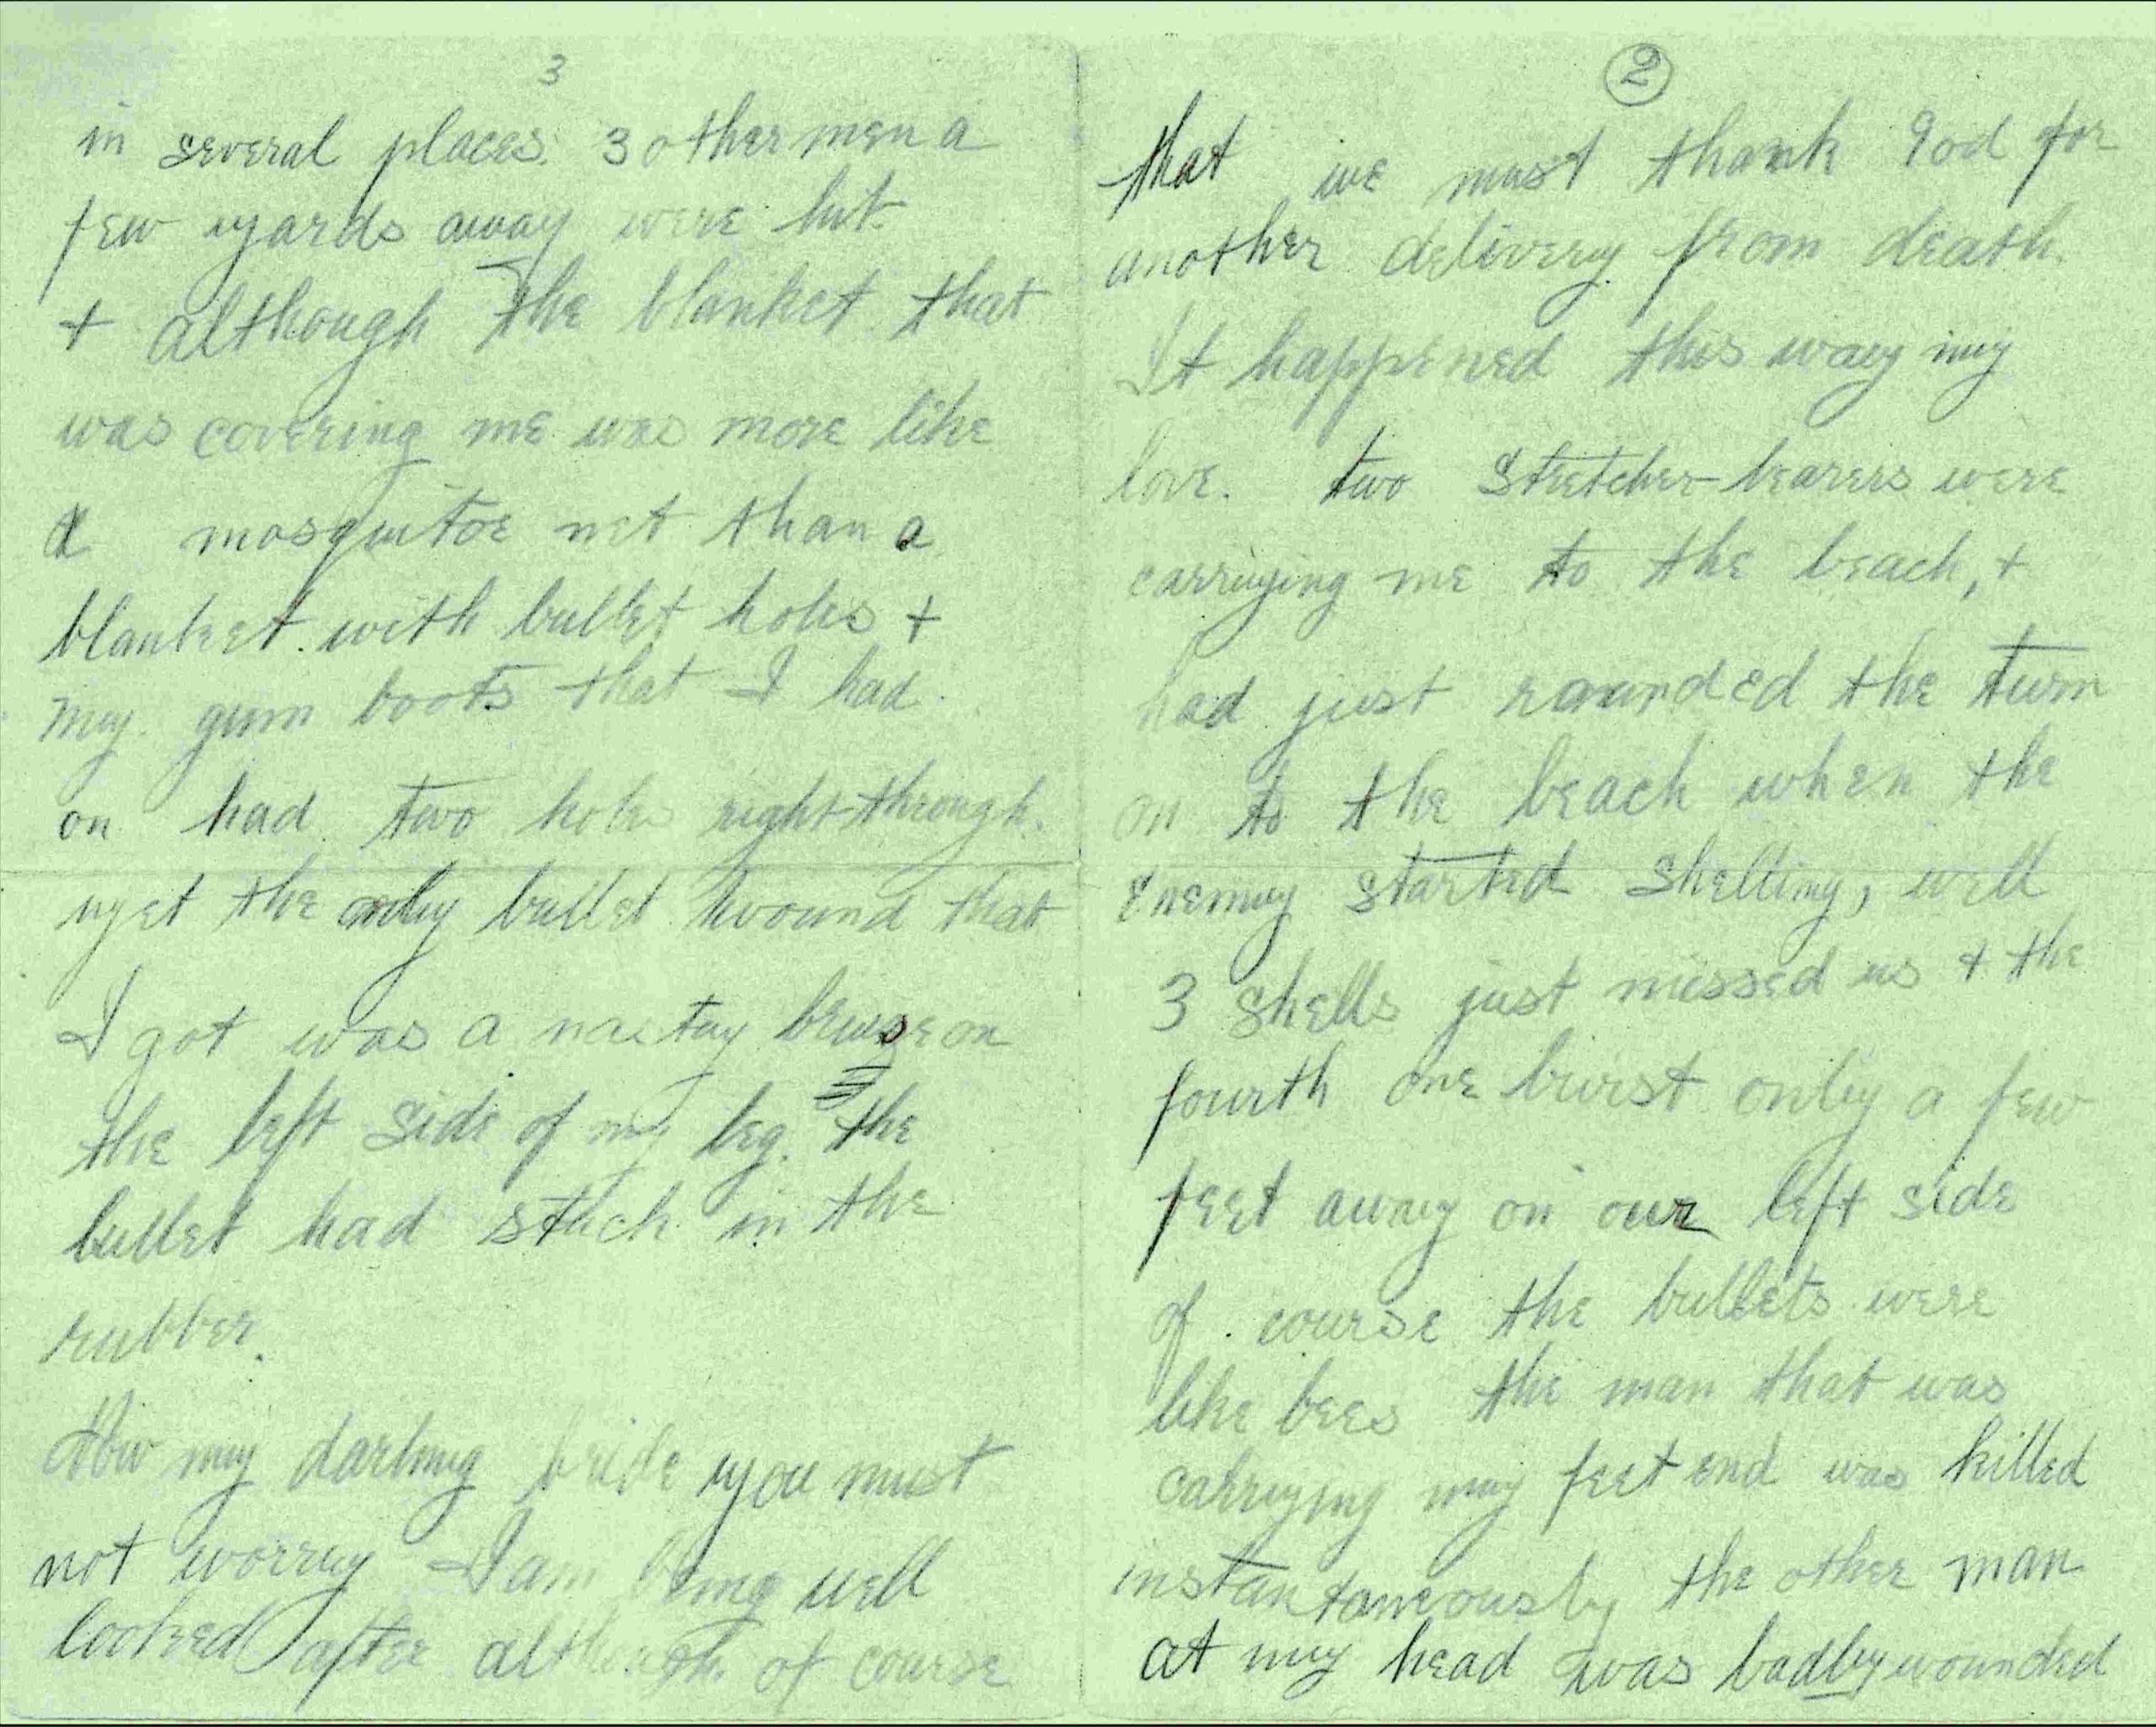 2
that we must thank God for
another delivery from death.
It happened this way my
love. two stretcher-bearers were
carrying me to the beach, +
had just rounded the turn
on to the beach when the
enemy started shelling, well
3 shells just missed us + the
fourth one burst only a few
feet away on our left side
of course the bullets were
like bees the man that was
carrying my feet end was killed
instantaneously the other man
at my head was badly wounded
3
in several places. 3 other men a
few yards away were hit.
+ although The blanket that
was covering me was more like
a mosquitoe net than a
blanket. with bullet holes +
my gum boots that I had
on had two holes right through.
yet the only bullet wound that
I got was a nasty bruise on
the left side of my leg. the
bullet had stuck in the
rubber.
Now my darling bride you must
not worry I am being well
looked after although of course